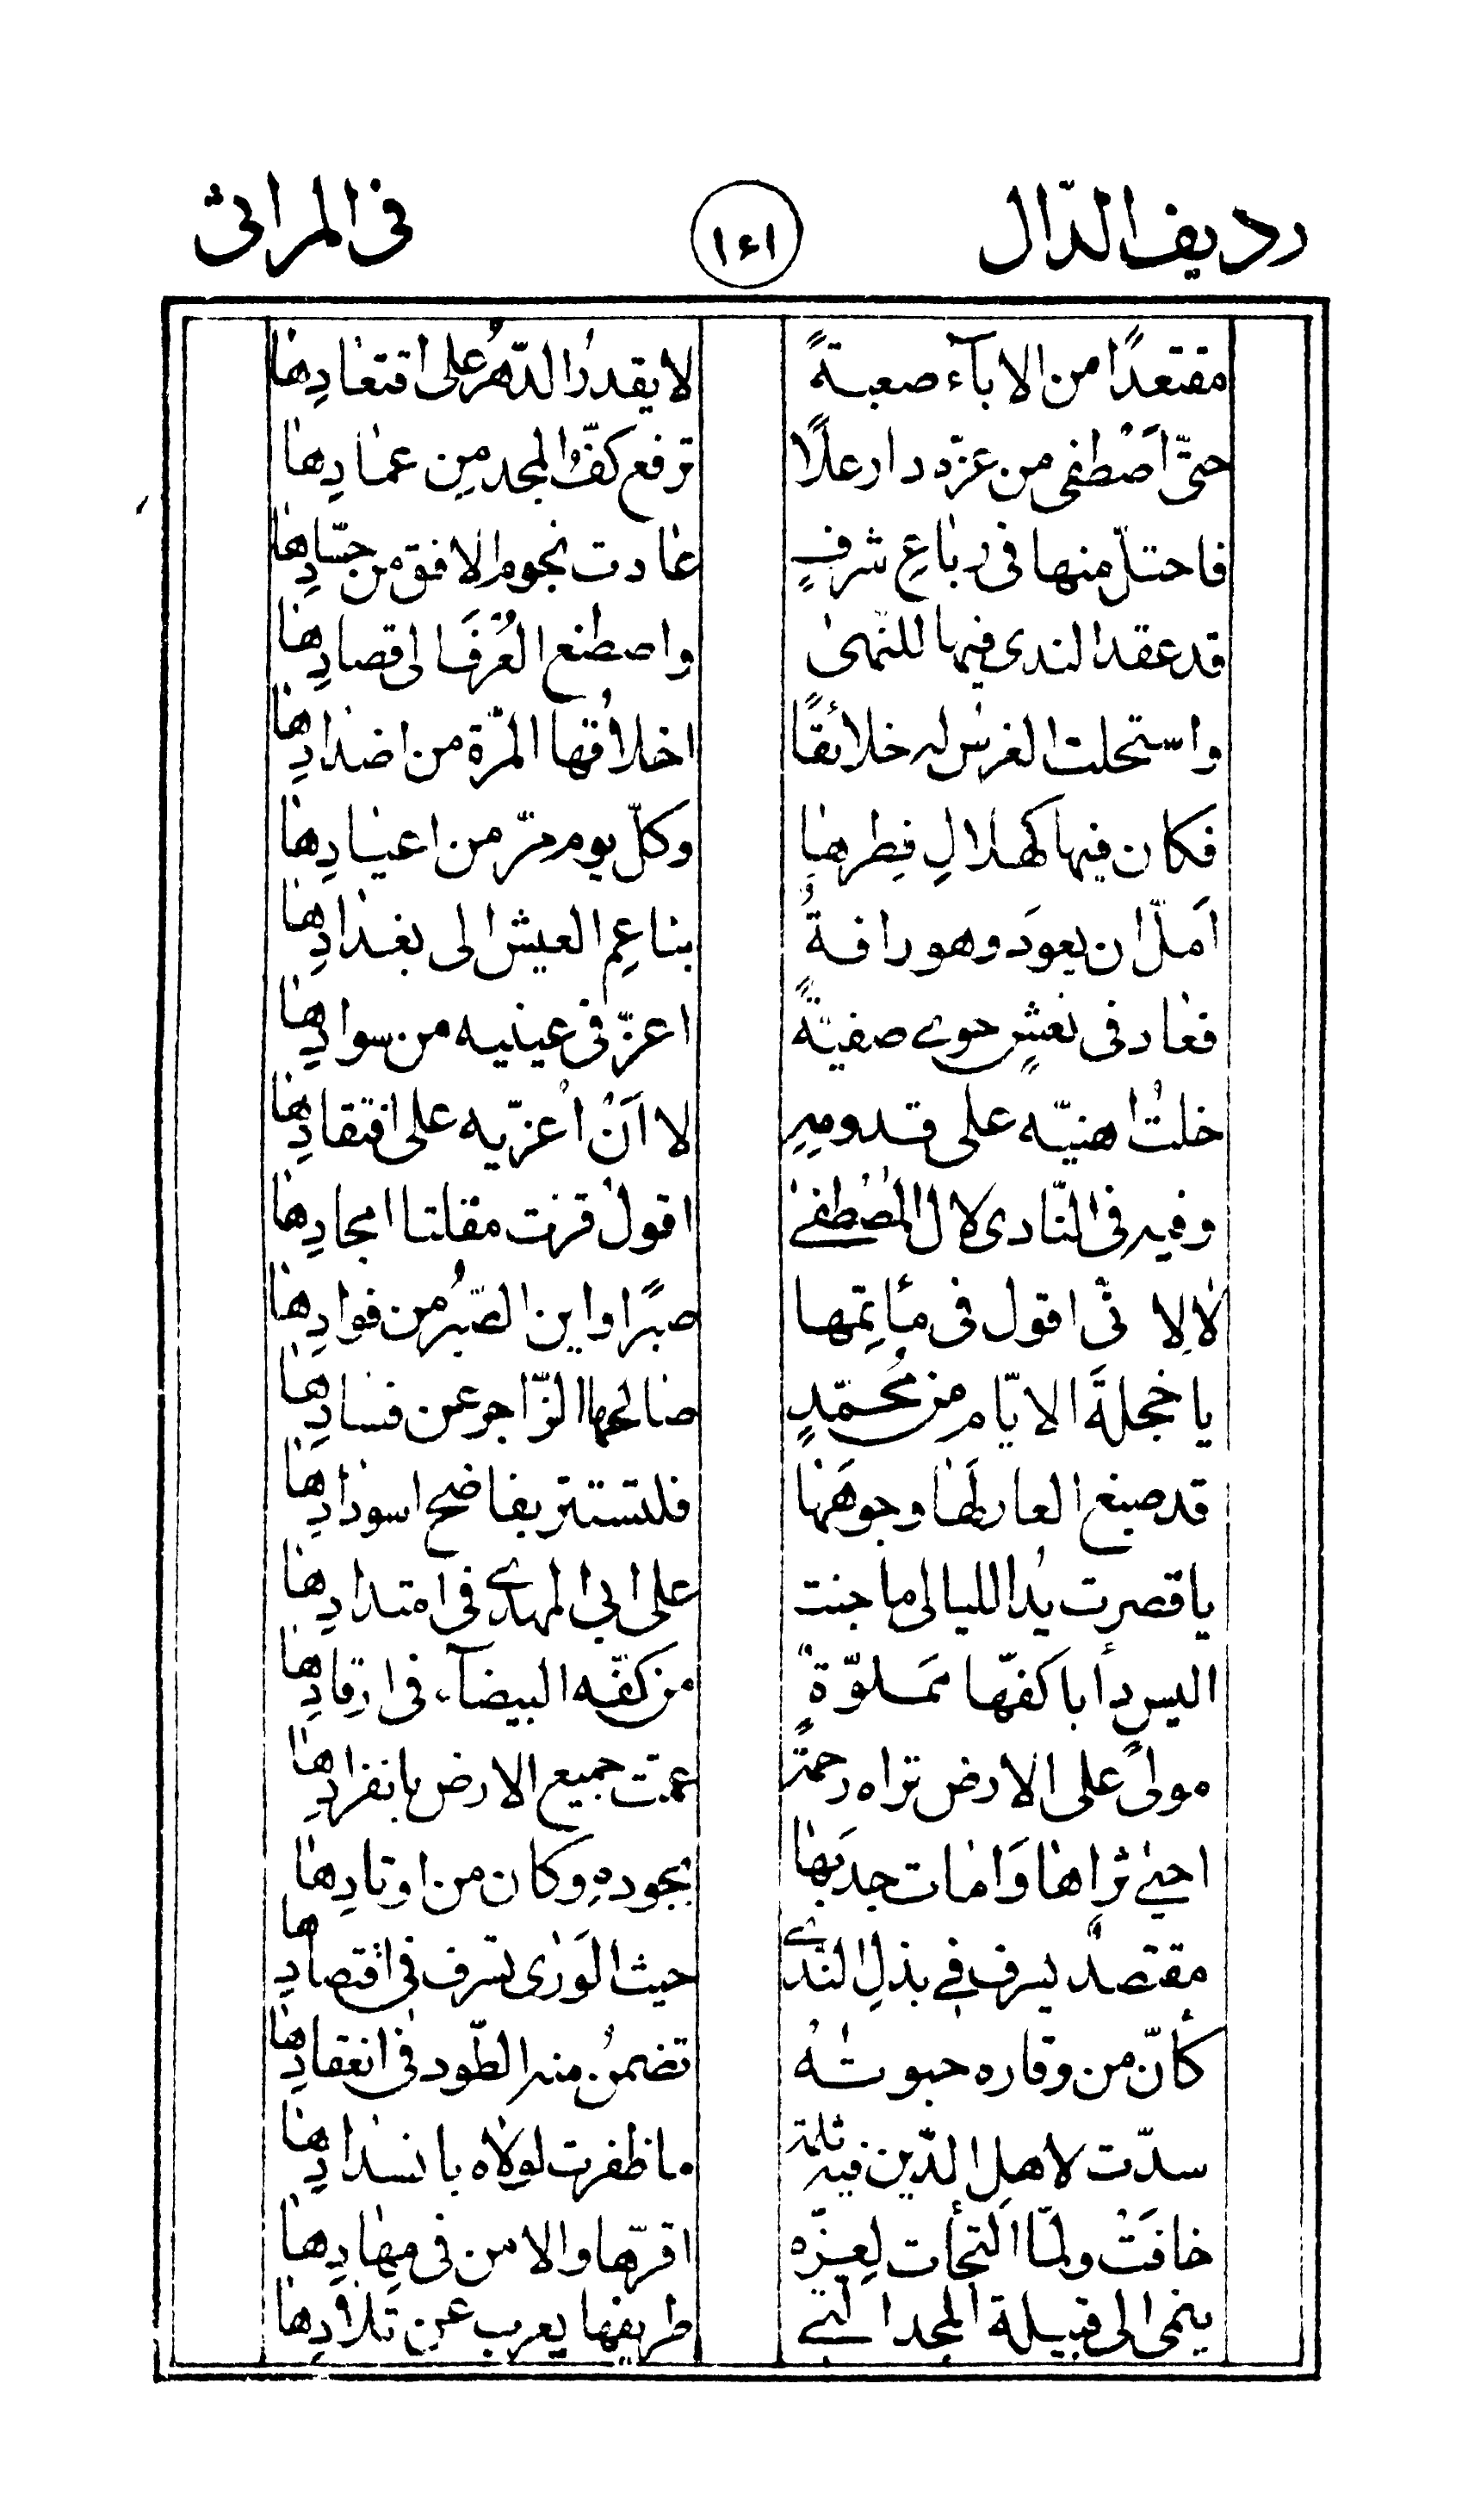 رديف الدّال ١٤١ فى المراثى
مقتعدًا من الاباۤء صعبةً لا يقدرُ الدّهرُ على اقتعادِها
حتّى اصْطفى من عزّه دار علًا ترفع كفُّ المجد مِن عمادِها
فاحتلّ منها فى رباعِ شرفٍ عادت نجوم الافق من حسّادِها
قد عقد الندى فيها للنّهى واصطنع العُرفَ الى قصادِها
واستحلت الغرس له خلائقًا اخلاقُها المرّة من اضدادِها
فكان فيها كهلالِ فِطرها وكلّ يوم مرّ من اعيادِها
اَملّ ان يعودَ وهو رافةُ بناعِم العيش الى بغدادِها
فعاد فى نعشٍ حوى صفيّةً اعزّ فى عينيه من سوادِها
خلتُ اهنيّه على قدومِهِ لا اَنْ اُعزّيه على افتقادِها
وفيه فى النّادى لال المصْطفى اقولُ قرّت مقلتا امجادِها
لا لِلا تى اقول فى مأتمِها صبرًا واين الصّبرُ من فوادِها
يا خجلةَ الايّام من محُمّدٍ صالحها الزّاجر عن فسادِها
قد صبغ العار لهَا وجوهَها فلتستتر بفاضح اسودادِها
يا قصرت يدُ الليالى ما جنت على ابى المهدى فى امتدادِها
اليس دأبا كفّها مملوّةٌ من كفّه البيضآء فى ارفادِها
مولىً على الارض تراه رحمةً عمت جميع الارض بانفرادِها
احيى ثراها وَامات جدبَها بجودهِ وكان من اوتادِها
مقتصدٌ يسرف فى بذلِ النّدى حيث الوَرى تسرف فى اقتصادِها
كأنّ من وقاره حبوتهُ تضمنُ منه الطّود فى انعقادِها
سدّت لاهل الدّين فيه ثلمة ما ظفرت لولاه بانسدادِها
خافَتْ ولمّا التجأت لِعزّه اقرّها والامن فى مِهادِها
ينمى الى قبيلة المجد الّتى طريفها يعرب عن تَلادِها